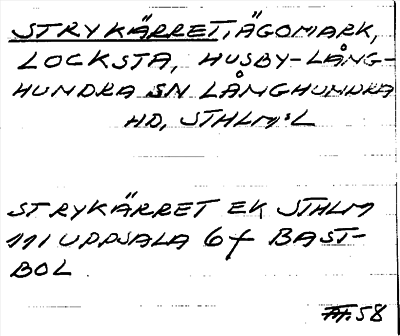 STRYKÄRRET, ÄGOMARK,
LOCKSTA, HUSBY-LÅNG-
HUNDRA SN LÅNGHUNDRA
HD, STHLM:L
STRYKÄRRET EK STHLM
111 UPPSALA 6f BAST-
BOL
58